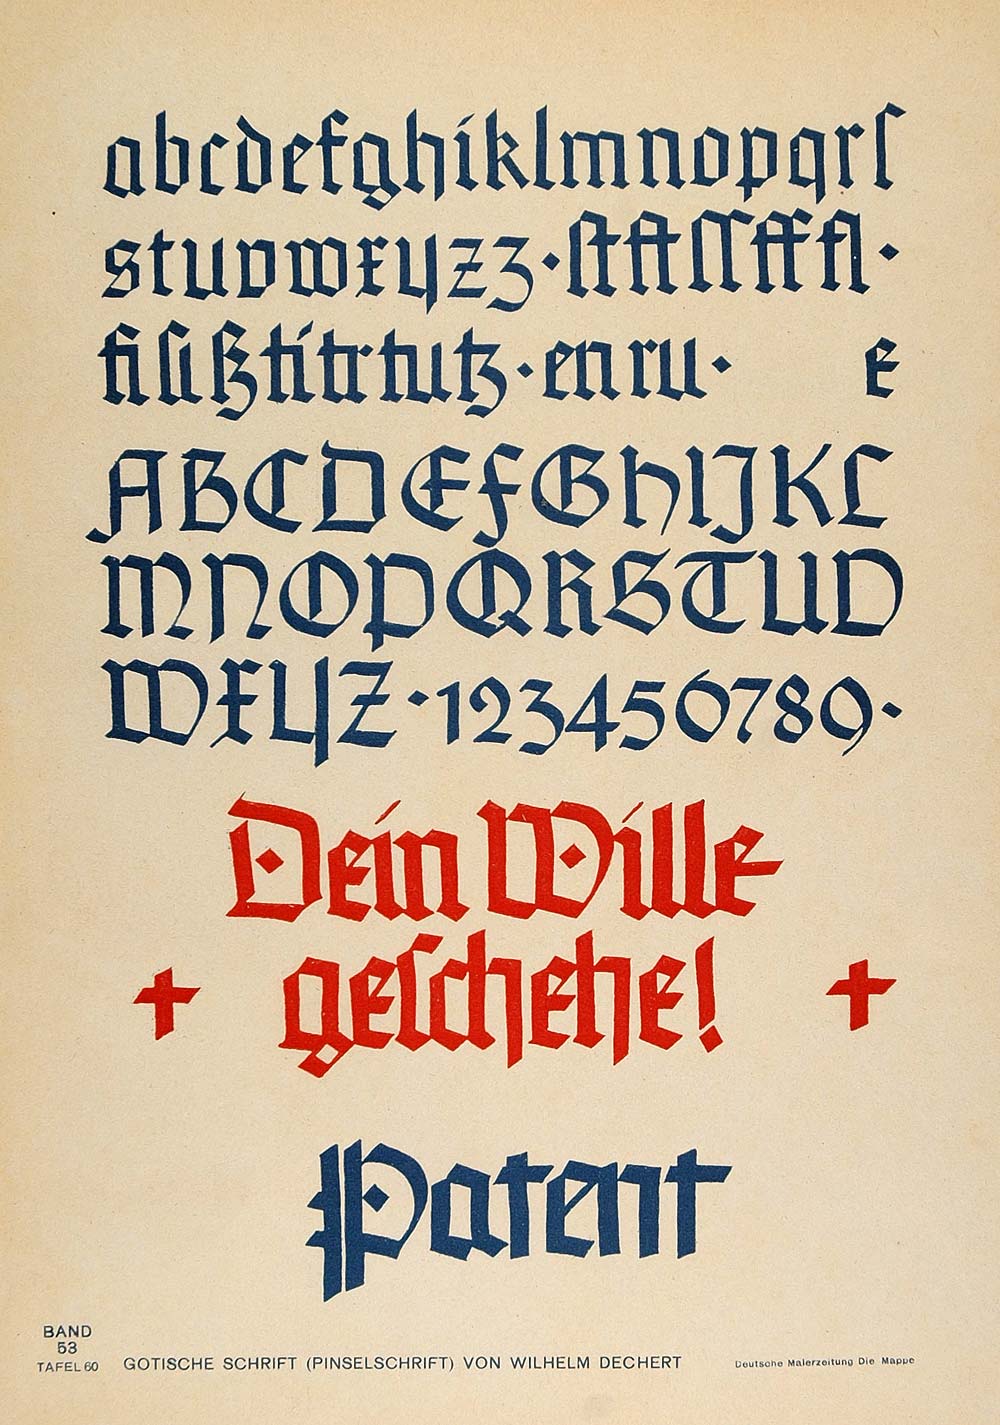 abcdefghiklmnopqrſ
stuvwxyzʒ · ſt ft ſſ ff fl ·
fi ſi ß ti tt tr tu tz · en ru · e
ABCDEFGHIJKL
MNOPQRSTUV
WXYZ · 123456789 ·
Dein Wille
+ geſchehe! +
Patent
BAND
53
TAFEL 60 GOTISCHE SCHRIFT (PINSELSCHRIFT) VON WILHELM DECHERT Deutsche Malerzeitung Die Mappe